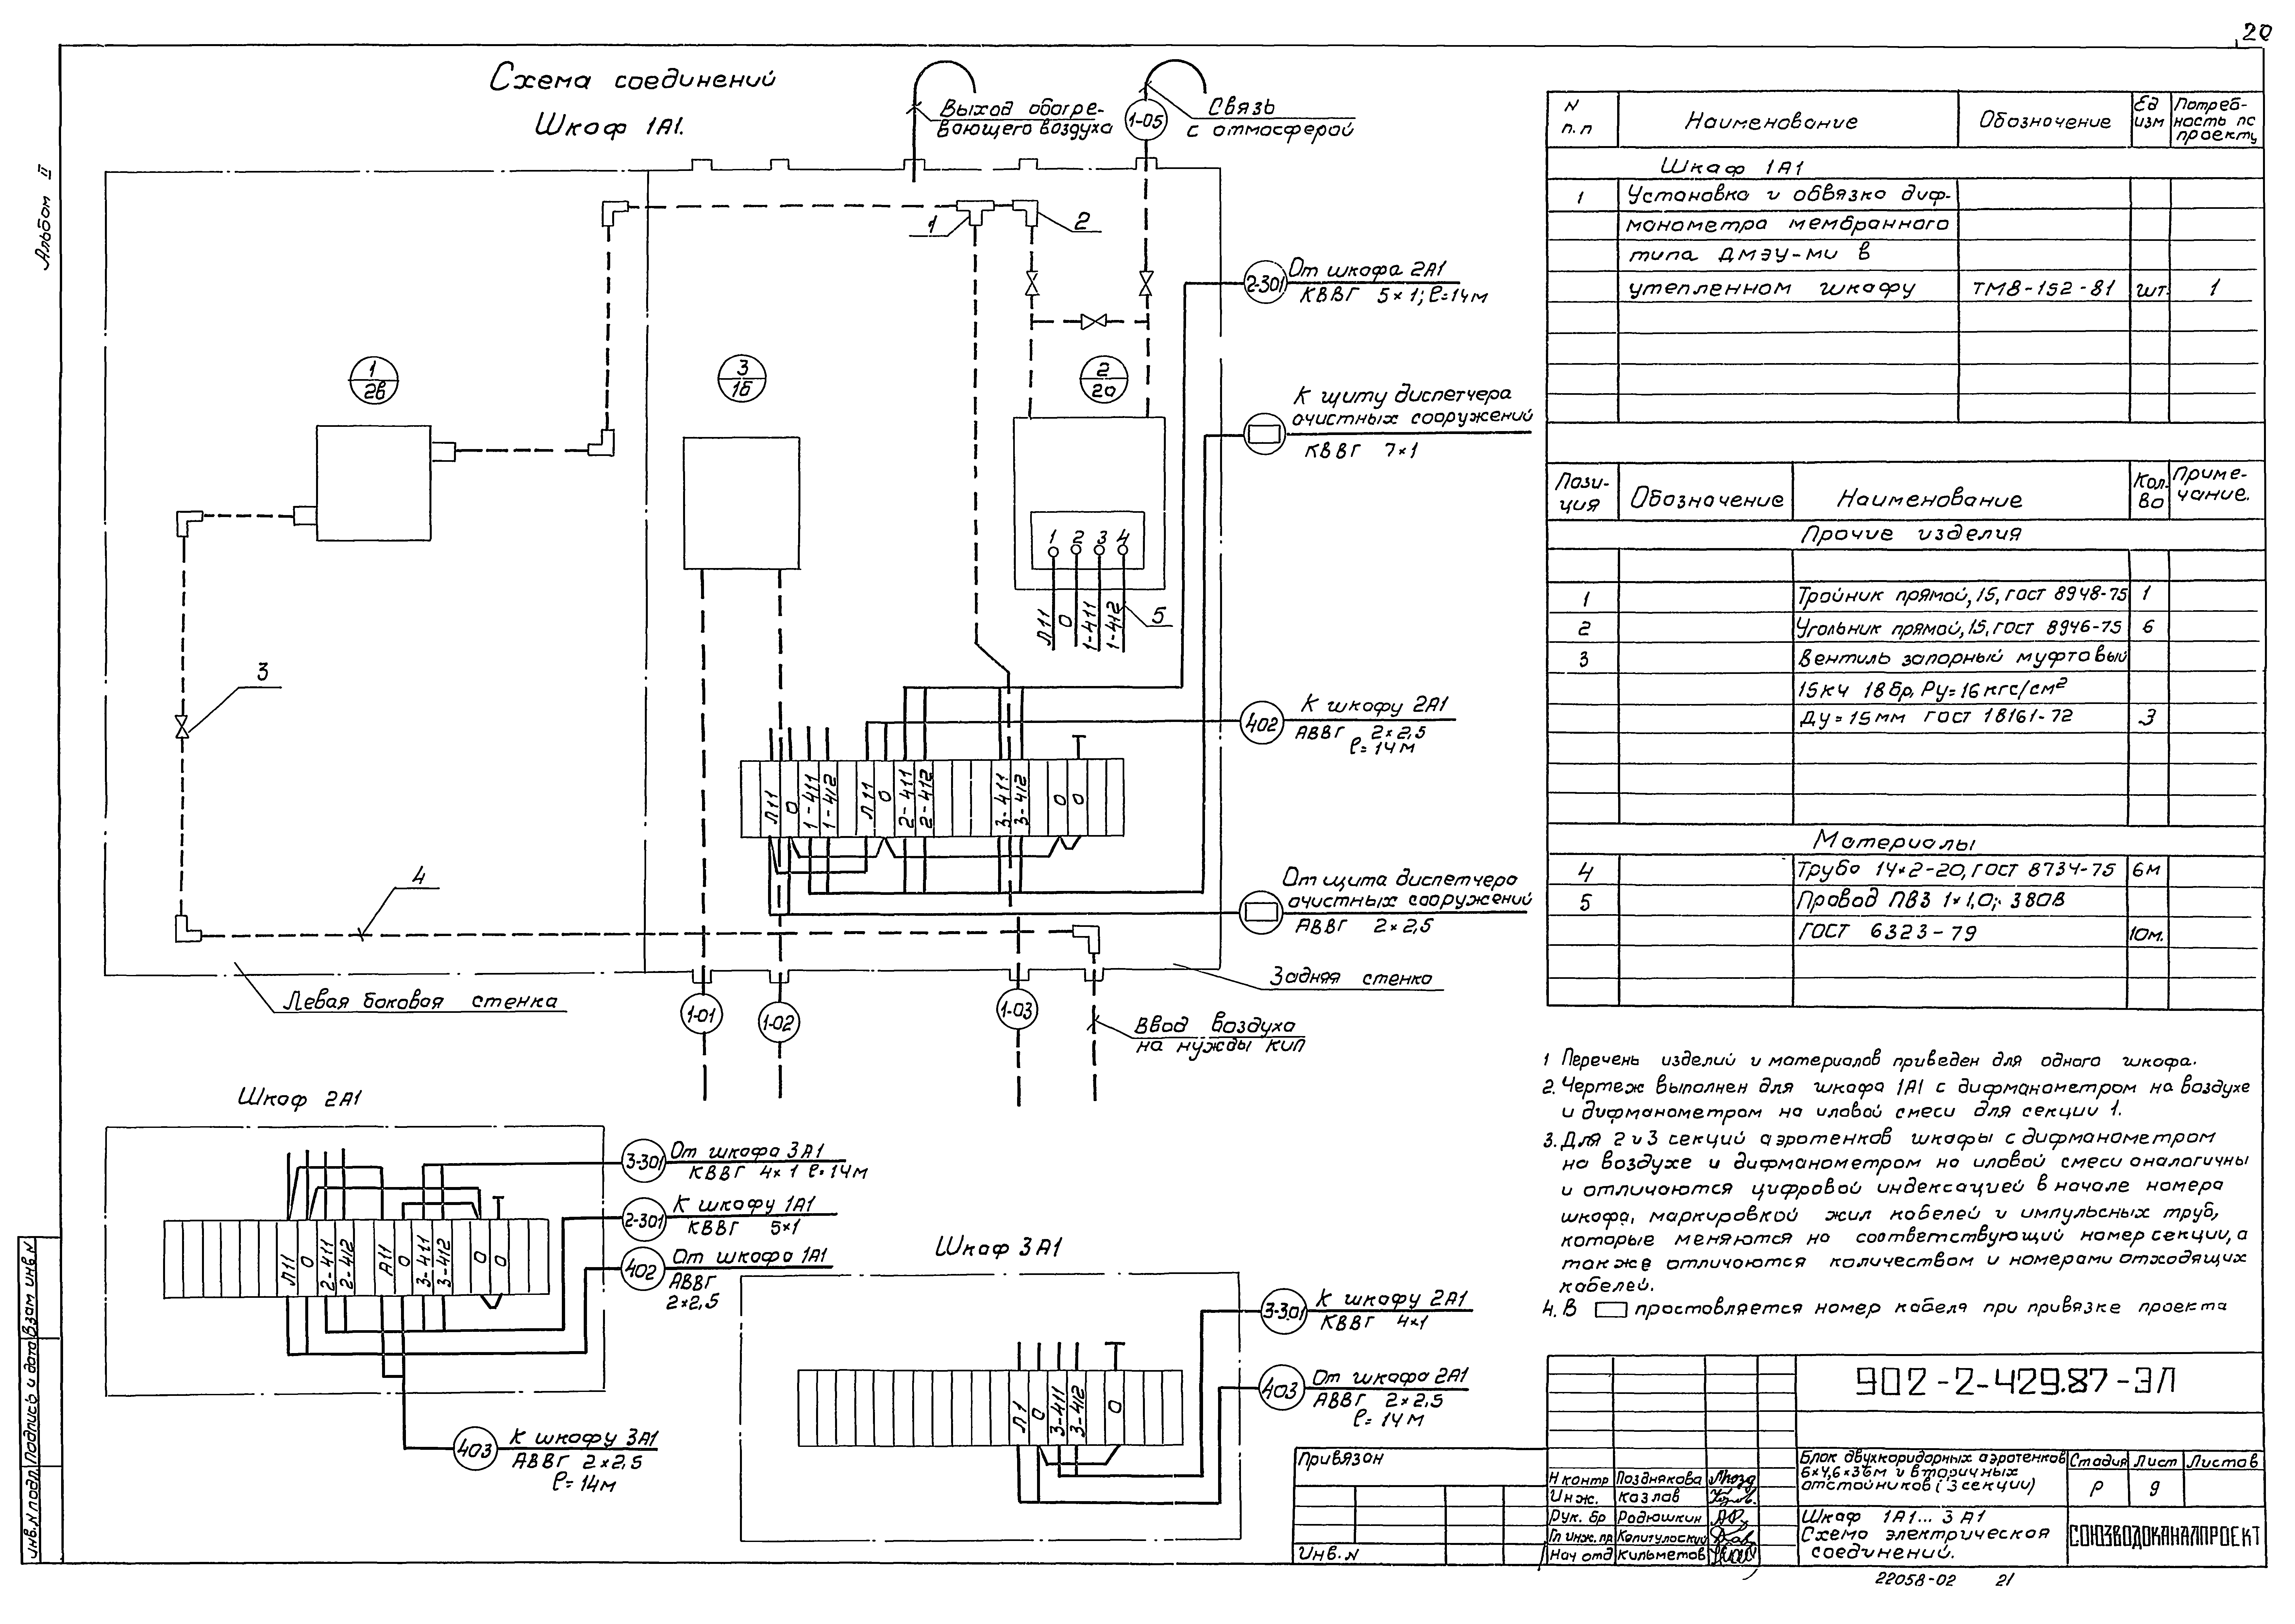 20
Альбом II
Схема соединений
Шкаф 1А1.
Выход обогре-
вающего воздуха
1-05
Связь
с атмосферой
1
2
2-301
От шкафа 2А1
КВВГ 5×1; ℓ=14м
1
2в
3
1б
2
2а
К щиту диспетчера
очистных сооружений
КВВГ 7×1
1 2 3 4
Л11
0
1-411
1-412
5
3
402
К шкафу 2А1
АВВГ 2×2,5
ℓ=14м
Л11
0
1-411
1-412
Л11
0
2-411
2-412
3-411
3-412
0
0
4
От щита диспетчера
очистных сооружений
АВВГ 2×2,5
Левая боковая стенка
Задняя стенка
1-01
1-02
1-03
Ввод воздуха
на нужды КИП
Шкаф 2А1
3-301
От шкафа 3А1
КВВГ 4×1 ℓ=14м
2-301
К шкафу 1А1
КВВГ 5×1
402
От шкафа 1А1
АВВГ
2×2,5
Л11
0
2-411
2-412
А11
0
3-411
3-412
0
0
403
К шкафу 3А1
АВВГ 2×2,5
ℓ=14м
Шкаф 3А1
3-301
К шкафу 2А1
КВВГ 4×1
403
От шкафа 2А1
АВВГ 2×2,5
ℓ=14м
Л1
0
3-411
3-412
0
N п.п Наименование Обозначение Ед изм Потреб-
ность по
проекту
Шкаф 1А1
1 Установка и обвязка диф-
манометра мембранного
типа ДМЭУ-МИ в
утепленном шкафу ТМ8-152-81 шт. 1
Пози-
ция Обозначение Наименование Кол-
во Приме-
чание.
Прочие изделия
1 Тройник прямой, 15, ГОСТ 8948-75 1
2 Угольник прямой, 15, ГОСТ 8946-75 6
3 Вентиль запорный муфтовый
15кч 18бр, Ру=16кгс/см²
Ду=15мм ГОСТ 18161-72 3
Материалы
4 Труба 14×2-20, ГОСТ 8734-75 6м
5 Провод ПВ3 1×1,0; 380В
ГОСТ 6323-79 10м.
1 Перечень изделий и материалов приведен для одного шкафа.
2. Чертеж выполнен для шкафа 1А1 с дифманометром на воздухе
и дифманометром на иловой смеси для секции 1.
3. Для 2 и 3 секций аэротенков шкафы с дифманометром
на воздухе и дифманометром на иловой смеси аналогичны
и отличаются цифровой индексацией в начале номера
шкафа, маркировкой жил кабелей и импульсных труб,
которые меняются на соответствующий номер секции, а
также отличаются количеством и номерами отходящих
кабелей.
4. В проставляется номер кабеля при привязке проекта
902-2-429.87-ЭЛ
Привязан
Инв.N
Н контр Позднякова
Инж. Козлав
Рук. бр Радюшкин
Гл инж. пр Капитульский
Нач отд Кильметов
Блок двухкоридорных аэротенков
6×4,6×36м и вторичных
отстойников (3 секции)
Стадия Лист Листов
Р 9
Шкаф 1А1... 3А1
Схема электрическая
соединений.
СОЮЗВОДОКАНАЛПРОЕКТ
Инв.N подл. Подпись и дата Взам инв.N
22058-02 21